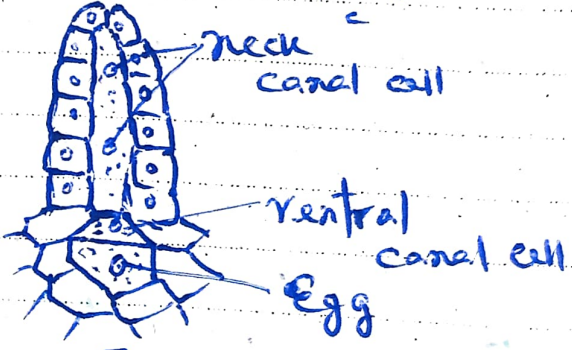 c
neck
canal cell
ventral
canal cell
Egg